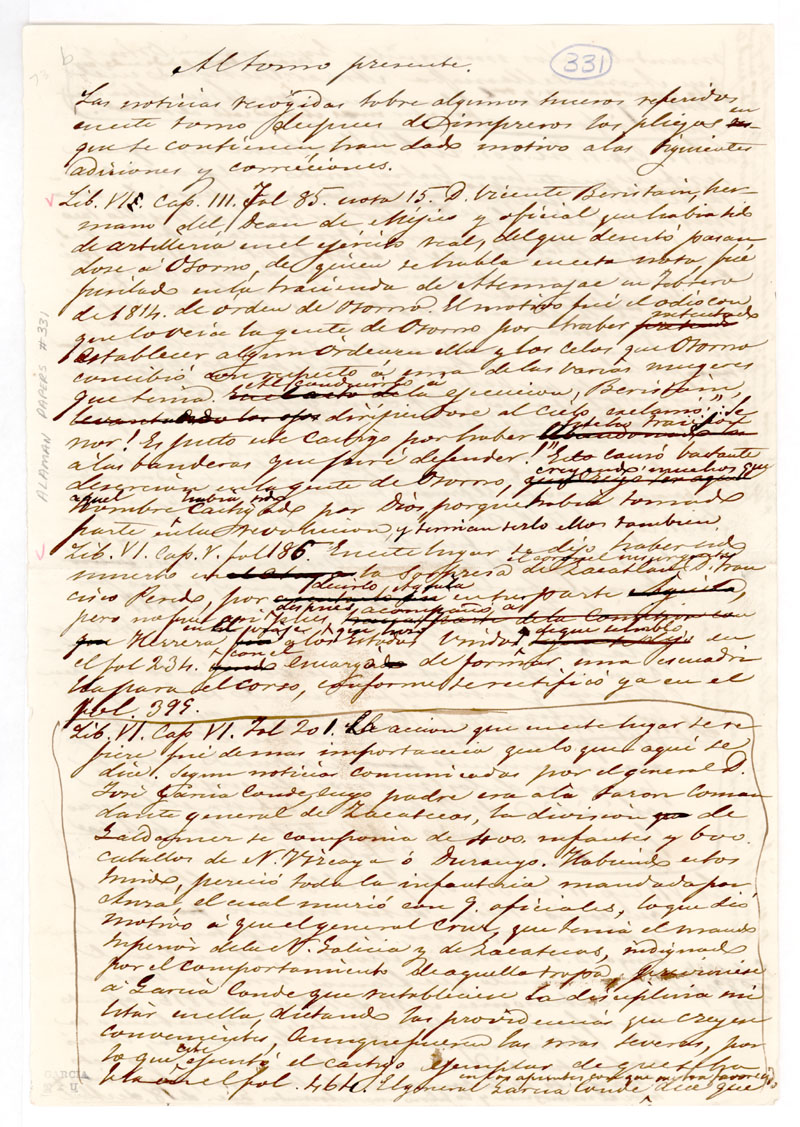 331
Al tomo presente.
Las noticias recogidas sobre algunos sucesos referidos
en este tomo despues de impresos los pliegos en
que se contienen han dado motivo a las siguientes
adiciones y correcciones.
Lib. VI. Cap. III. Fol 85. nota 15. D. Vicente Beristain, her
mano del Dean de Mejico y oficial que habia sido
de artilleria en el ejército real, del que desertó pasan
dose a Osorno, de quien se habla en esta nota, fué
fusilado en la hacienda de Atlamajac en Febrero
de 1814. de orden de Osorno. El motivo fué el odio con
que lo veia la gente de Osorno por haber intentado
establecer algun órden en ella y los celos que Osorno
concibió con respecto á una de las varias mugeres
que tenia. Al conducirlo a la ejecucion, Beristain,
dirigiendose al cielo exclamó: "Se
ñor! Es justo este castigo por haber hecho traicion
a las banderas que juré defender!" Esto causó bastante
desercion en la gente de Osorno, creyendo muchos que
aquel hombre habia sido castigado por Dios porque habia tomado
parte en la revolucion, y temian serlo ellos tambien.
Lib. VI. Cap. V. fol 186. En este lugar se dijo haber sido
muerto en la sorpresa de Zacatlan D. Fran
cisco Peredo, por decirlo
pero no fué asi pues, despues acompañó a
Herrera en el viage a los Estados Unidos de que se habla en
el fol 234. con el encargo de formar una escuadri
lla para el corso, conforme se rectificó ya en el
fol. 399.
Lib. VI. Cap VI. Fol 201. La accion que en este lugar se re
fiere fué de mas importancia que lo que aqui se
dice. Segun noticias comunicadas por el general D.
José Garcia Conde, cuyo padre era a la sazon coman
dante general de Zacatecas, la division de
Galdamez se componia de 400. infantes y 600.
caballos de N. Vizcaya ó Durango. Habiendo estos
huido, pereció toda la infanteria mandada por
Anza, el cual murió con 9. oficiales, lo que dió
motivo á que el general Cruz, que tenia el mando
superior de la N. Galicia y de Zacatecas, indignado
por el comportamiento de aquella tropa, previniese
a Garcia Conde que restableciese la disciplina mi
litar en ella, dictando las providencias que creyese
convenientes, aunque fuesen las mas severas, por
lo que este ejecutó el castigo ejemplar de que se ha
bla en el fol. 464. El general Garcia Conde dice que
en los apuntes con que me ha favorecido
ALAMAN PAPERS #331